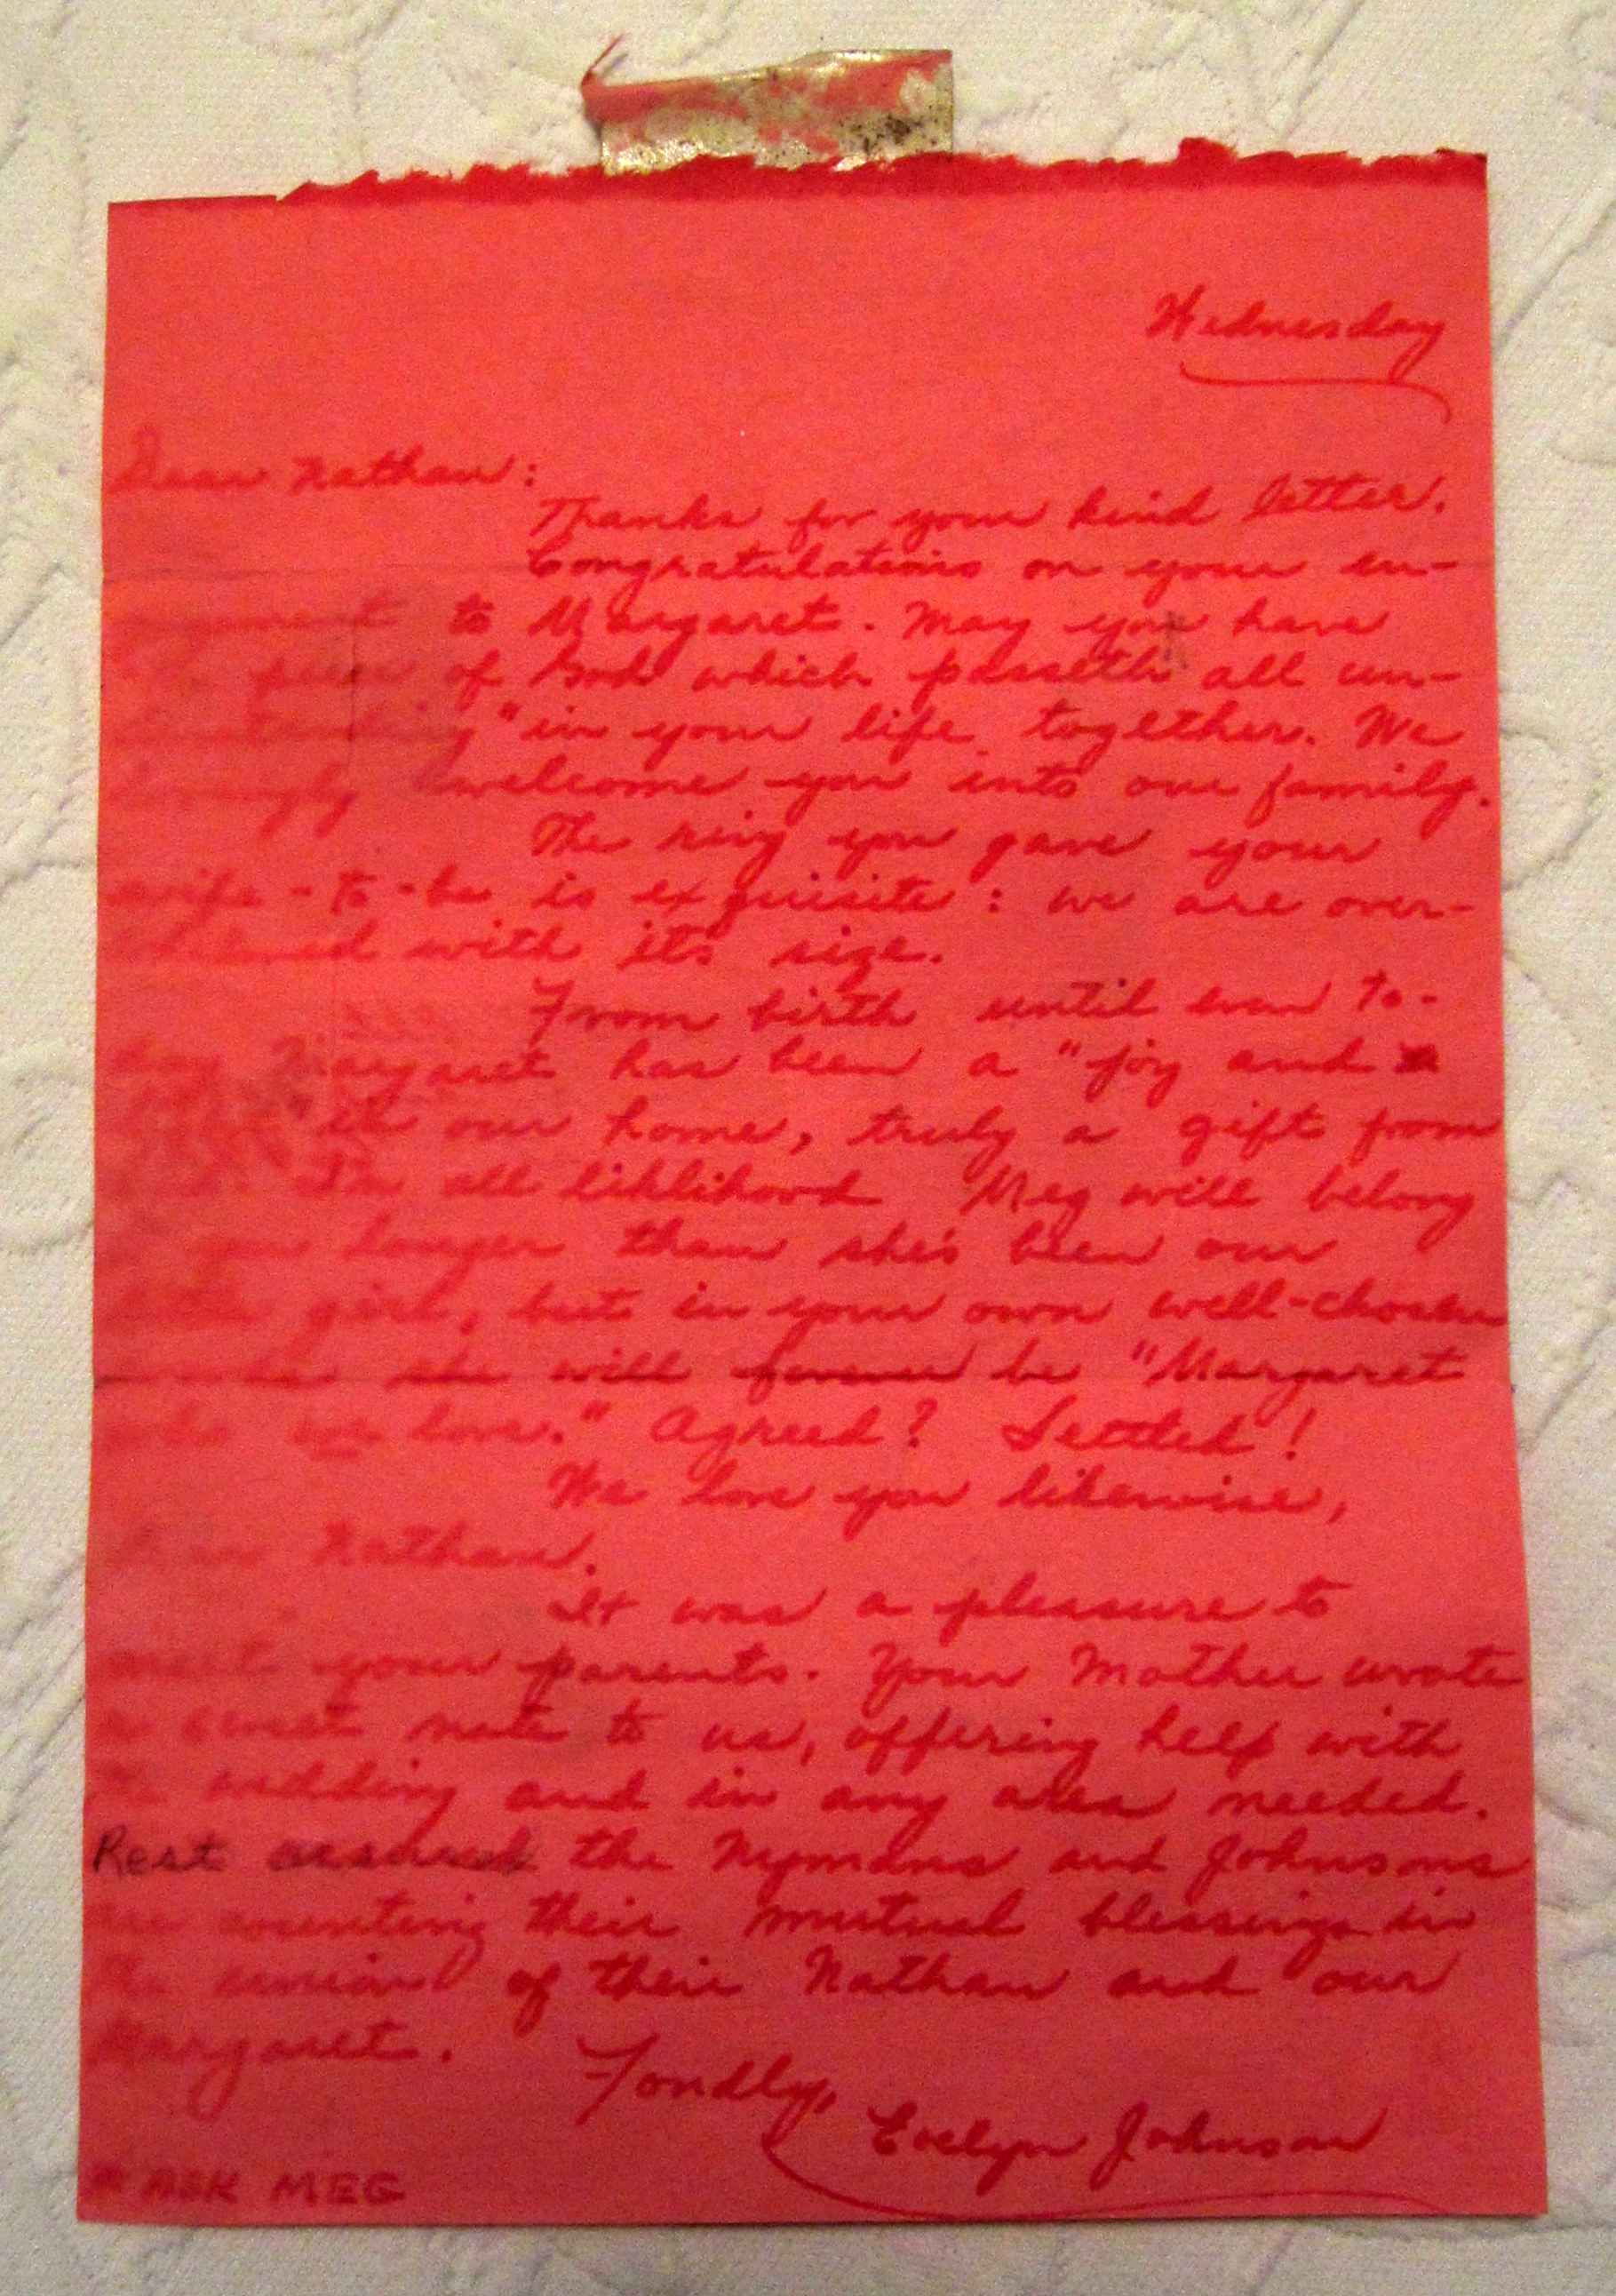 Wednesday
Dear Nathan:
Thanks for your kind letter.
Congratulations on your en-
to Margaret. May you have
peace of God which passeth all un-
" in your life together. We
lovingly welcome you into our family.
The ring you gave your
wife-to-be is exquisite: we are over-
with its size.
From birth until even to-
day Margaret has been a "joy and a
in our home, truly a gift from
In all liklihood Meg will belong
you longer than she's been our
little girl, but in your own well-chosen
words she will forever be "Margaret
who we love." Agreed? Settled!
We love you likewise,
Nathan.
It was a pleasure to
meet your parents. Your Mother wrote
a sweet note to us, offering help with
the wedding and in any area needed.
Rest assured the Nymans and Johnsons
are counting their mutual blessings in
the union of their Nathan and our
Margaret.
Fondly,
Evelyn Johnson
* ASK MEG